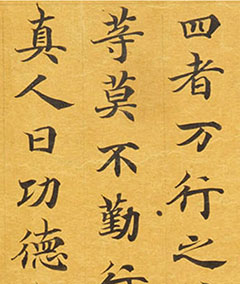 四者万行之
等莫不勤行
真人曰功德